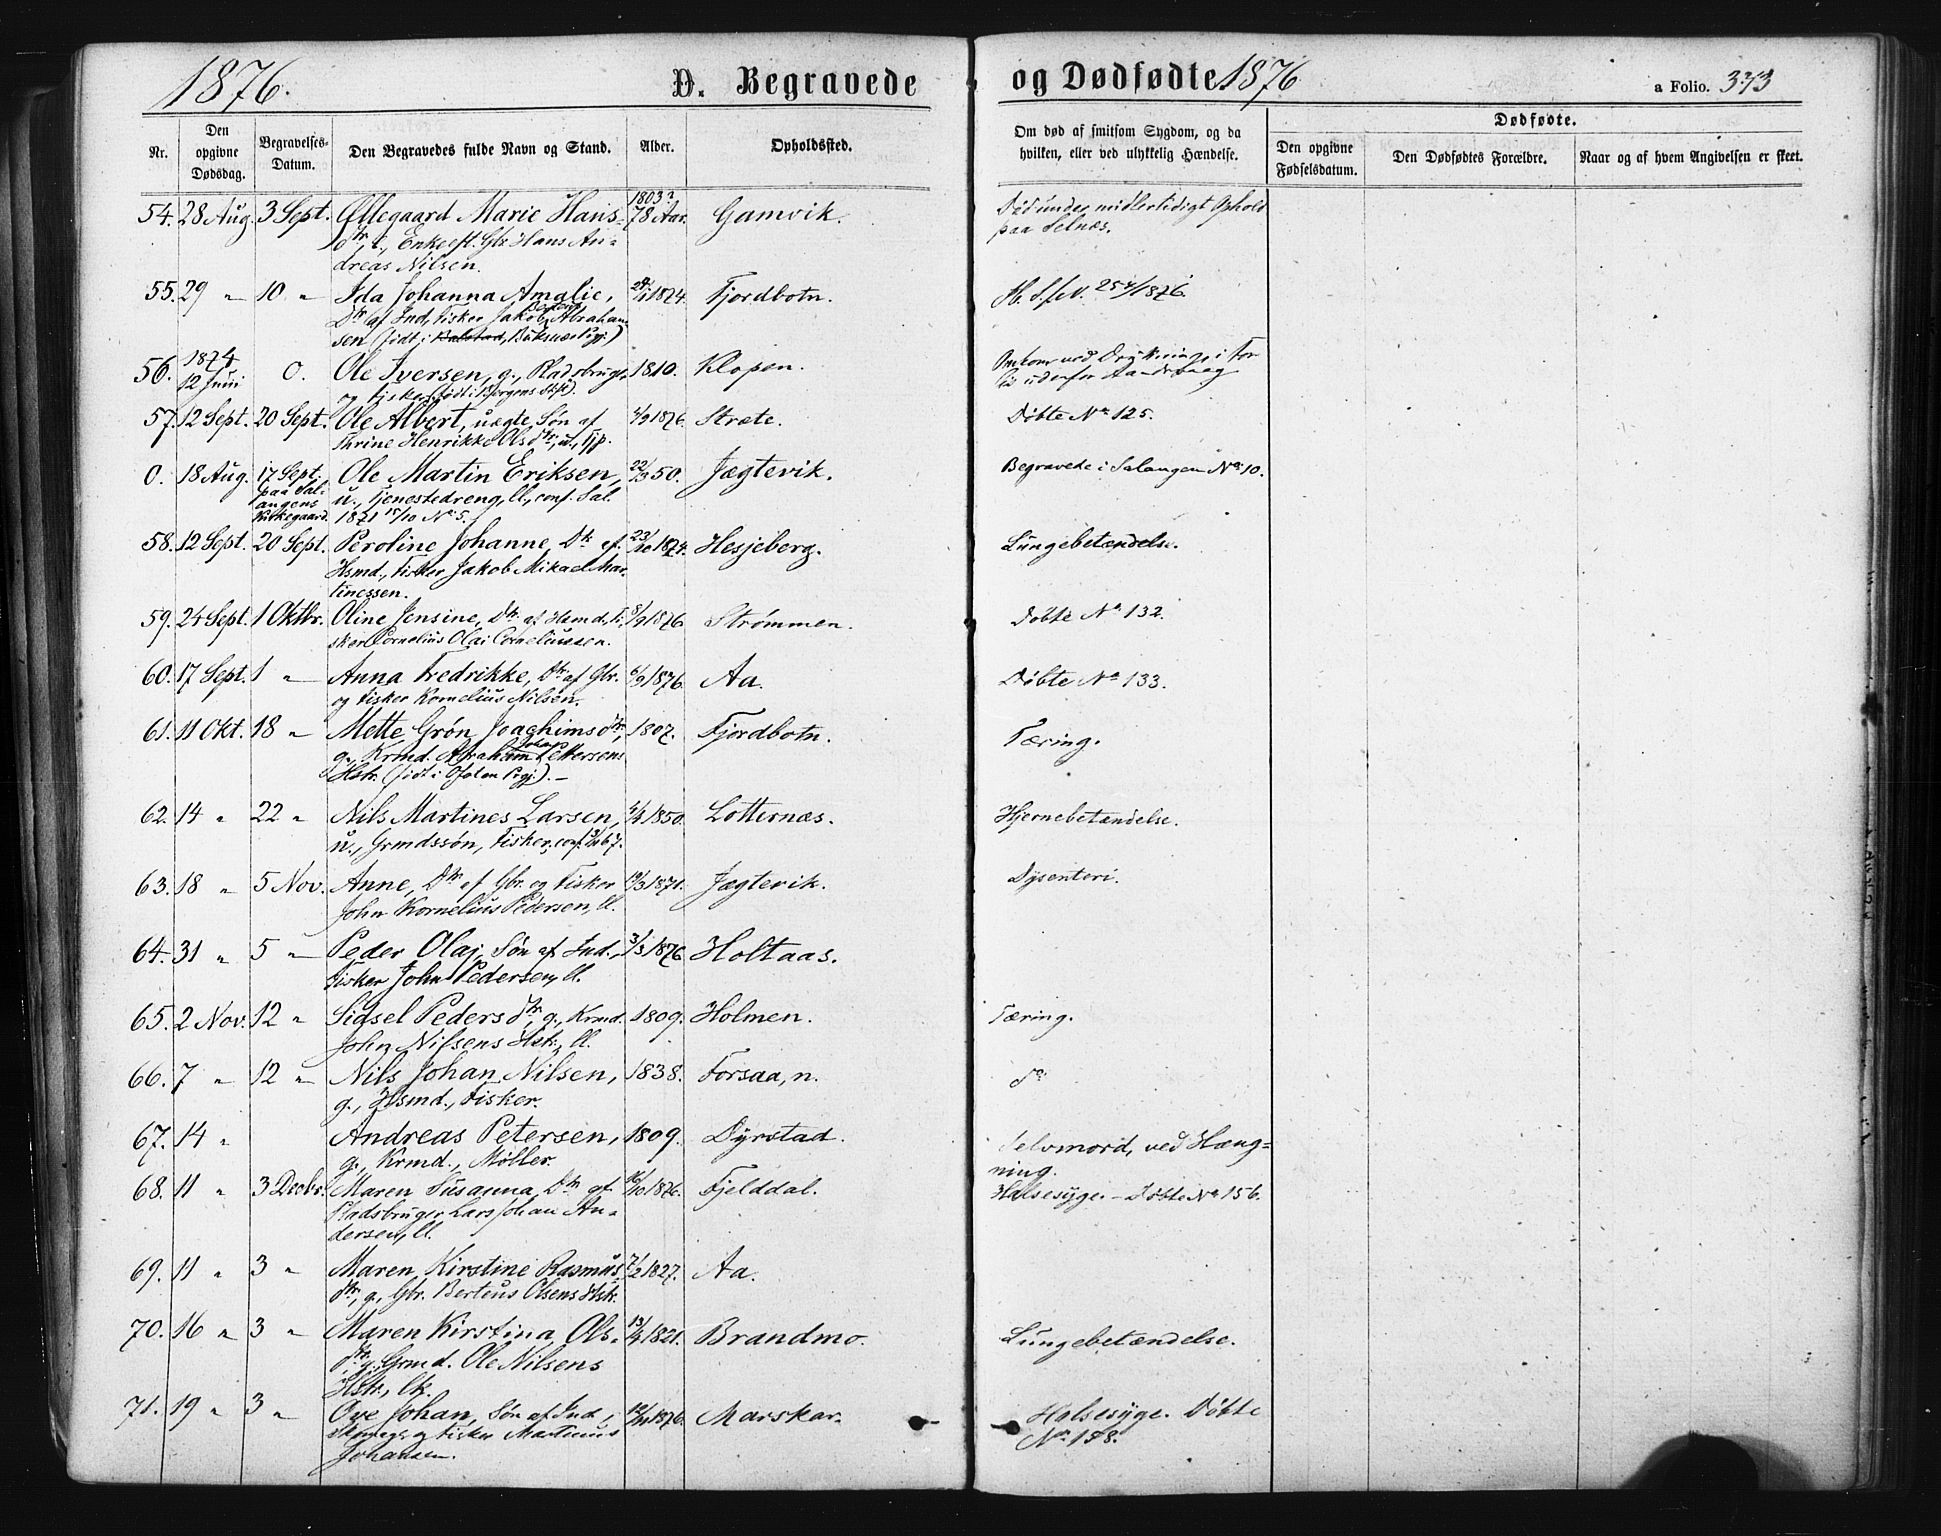 1876. D. Begravede og Dødfødte 1876 a Folio. 373
Nr. Den opgivne Dødsdag. Begravelses-Datum. Den Begravedes fulde Navn og Stand. Alder. Opholdssted. Om død af smitsom Sygdom, og da hvilken, eller ved ulykkelig Hændelse. Dødfødte.
Den opgivne Fødselsdatum. Den Dødfødtes Forældre. Naar og af hvem Angivelsen er skeet.
54. 28 Aug. 3 Sept. Øllegaard Marie Hans- 1803? 78 Aar. Gamvik. Død under midlertidigt Ophold
dtr, i., Enke eft. Gbr Hans An- paa Selnæs.
dreas Nilsen.
55. 29 " 10 " Ida Johanna Amalie, 1874. Fjordbotn. 1876.
Dtr af Ind., Fisker Jakob Abraham-
sen (født i Balstad, Buksnæs Pgj.)
56. 1874 12 Juni 0. Ole Iversen, g., Pladsbruger 1810. Klopen. Omkom ved Drukning i For
og Fisker, født i Bergens Stift).
57. 12 Sept. 20 Sept. Ole Albert, uægte Søn af /9 1876. Stræte. Døbte No 125.
Thrine Henrikke Olsdtr, u., Tjp.
0. 18 Aug. 17 Sept. paa Sal- Ole Martin Eriksen, 22/3 50. Jægtevik. Begravede i Salangen No 10.
angens u., Tjenestedreng, ll., conf. Sal.
Kirkegaard. 1871 15/10 No 5.
58. 12 Sept. 20 Sept. Peroline Johanne, Dtr af 23/10 1874. Hesjeberg. Lungebetændelse.
Hsmd., Fisker Jakob Mikael Mar-
tinessen.
59. 24 Sept. 1 Oktbr. Oline Jensine, Dtr af Hsmd., Fi- 8/9 1876. Strømmen. Døbte No 132.
sker Cornelius Olai Corneliussen.
60. 17 Sept. 1 " Anna Fredrikke, Dtr af Gbr. 6/9 1876. Aa. Døbte No 133.
og Fisker Kornelius Nilsen.
61. 11 Okt. 18 " Mette Grøn Joachimsdtr, 1807. Fjordbotn. Tæring.
g., Krmd. Abraham Johan Pettersens
Hstr. (født i Ofoten Pgj.). -
62. 14 " 22 " Nils Martines Larsen, /4 1850. Lotternæs. Hjernebetændelse.
u., Grmdssøn, Fisker, conf. 67.
63. 18 " 5 Nov. Anne, Dtr af Gbr. og Fisker /3 1871. Jægtevik. Dysenteri.
John Kornelius Pedersen, ll.
64. 31 " 5 " Peder Olaj, Søn af Ind., 3/3 1876. Holtaas.
Fisker John Pedersen, ll.
65. 2 Nov. 12 " Sidsel Pedersdtr, g., Krmd. 1809. Holmen. Tæring.
John Nilsens Hstr, ll.
66. 7 " 12 " Nils Johan Nilsen, 1838. Forsaa, n. do
g., Hsmd., Fisker.
67. 14 " Andreas Petersen, 1809. Dyrstad. Selvmord, ved Hæng-
g., Krmd., Møller. ning.
68. 11 " 3 Decbr. Maren Susanna, Dtr af /10 1876. Fjelddal. Halsesyge. - Døbte No 156.
Pladsbruger Lars Johan An-
dersen, ll.
69. 11 " 3 " Maren Kirstine Rasmus- 7/2 1827. Aa.
dtr, g., Gbr. Berteus Olsens Hstr.
70. 16 " 3 " Maren Kirstina Ols- 13/4 1821. Brandmo. Lungebetændelse.
dtr, g., Grmd. Ole Nilsens
Hstr.,
71. 19 " 3 " Ove Johan, Søn af Ind., 1876. Marskar. Halsesyge. Døbte
og Fisker Martinus No 158.
Johansen.